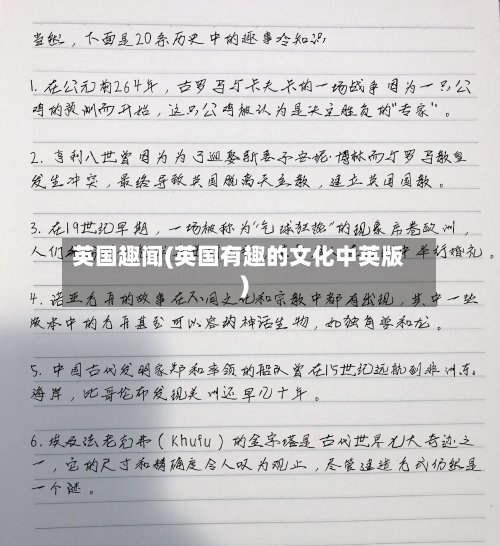 当然，下面是20条历史中的趣事冷知识：
1. 在公元前264年，古罗马与卡夫卡的一场战争因为一只公
鸡的预测而开始，这只公鸡被认为是决定胜负的"专家"。
2. 亨利八世曾因为为了迎娶新妻子安妮·博林而与罗马教皇
发生冲突，最终导致英国脱离天主教，建立英国国教。
3. 在19世纪早期，一场被称为"气球狂热"的现象席卷欧洲，
人们
中举行婚礼。
英国趣闻(英国有趣的文化中英版
)
4. 诺亚方舟的故事在不同文化和宗教中都有出现，其中一些
版本中的方舟甚至可以容纳神话生物，如独角兽和龙。
5. 中国古代发明家郑和率领的船队曾在15世纪远航到非洲东
海岸，比哥伦布发现美洲还早几十年。
6. 埃及法老胡弗（Khufu）的金字塔是古代世界七大奇迹之
一，它的尺寸和精确度令人叹为观止，尽管建造方式仍然是
一个谜。